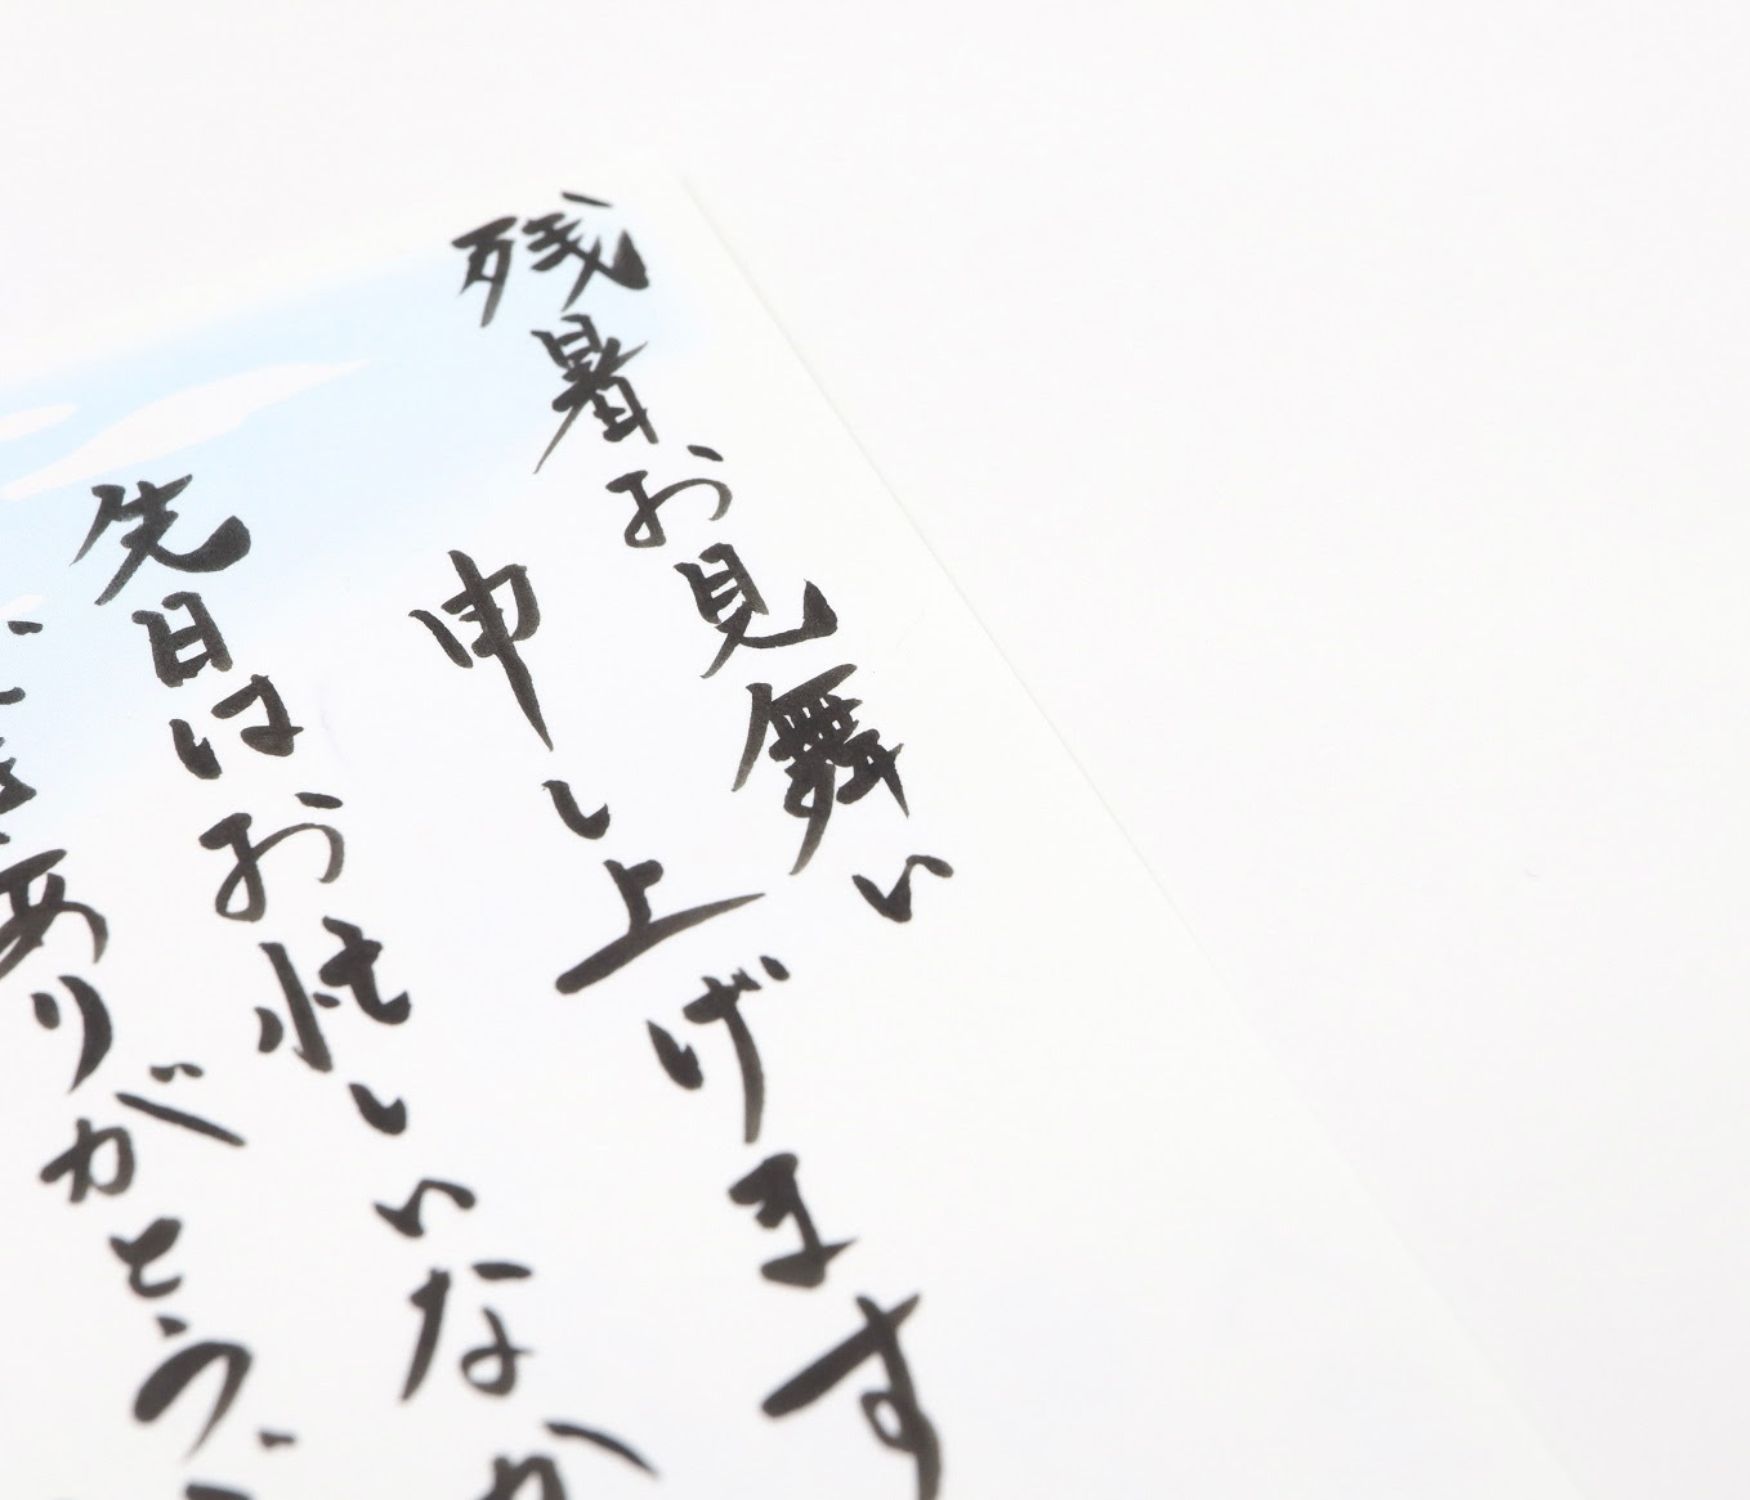 残暑お見舞い
申し上げます
先日はお忙しいなか
ありがとうご